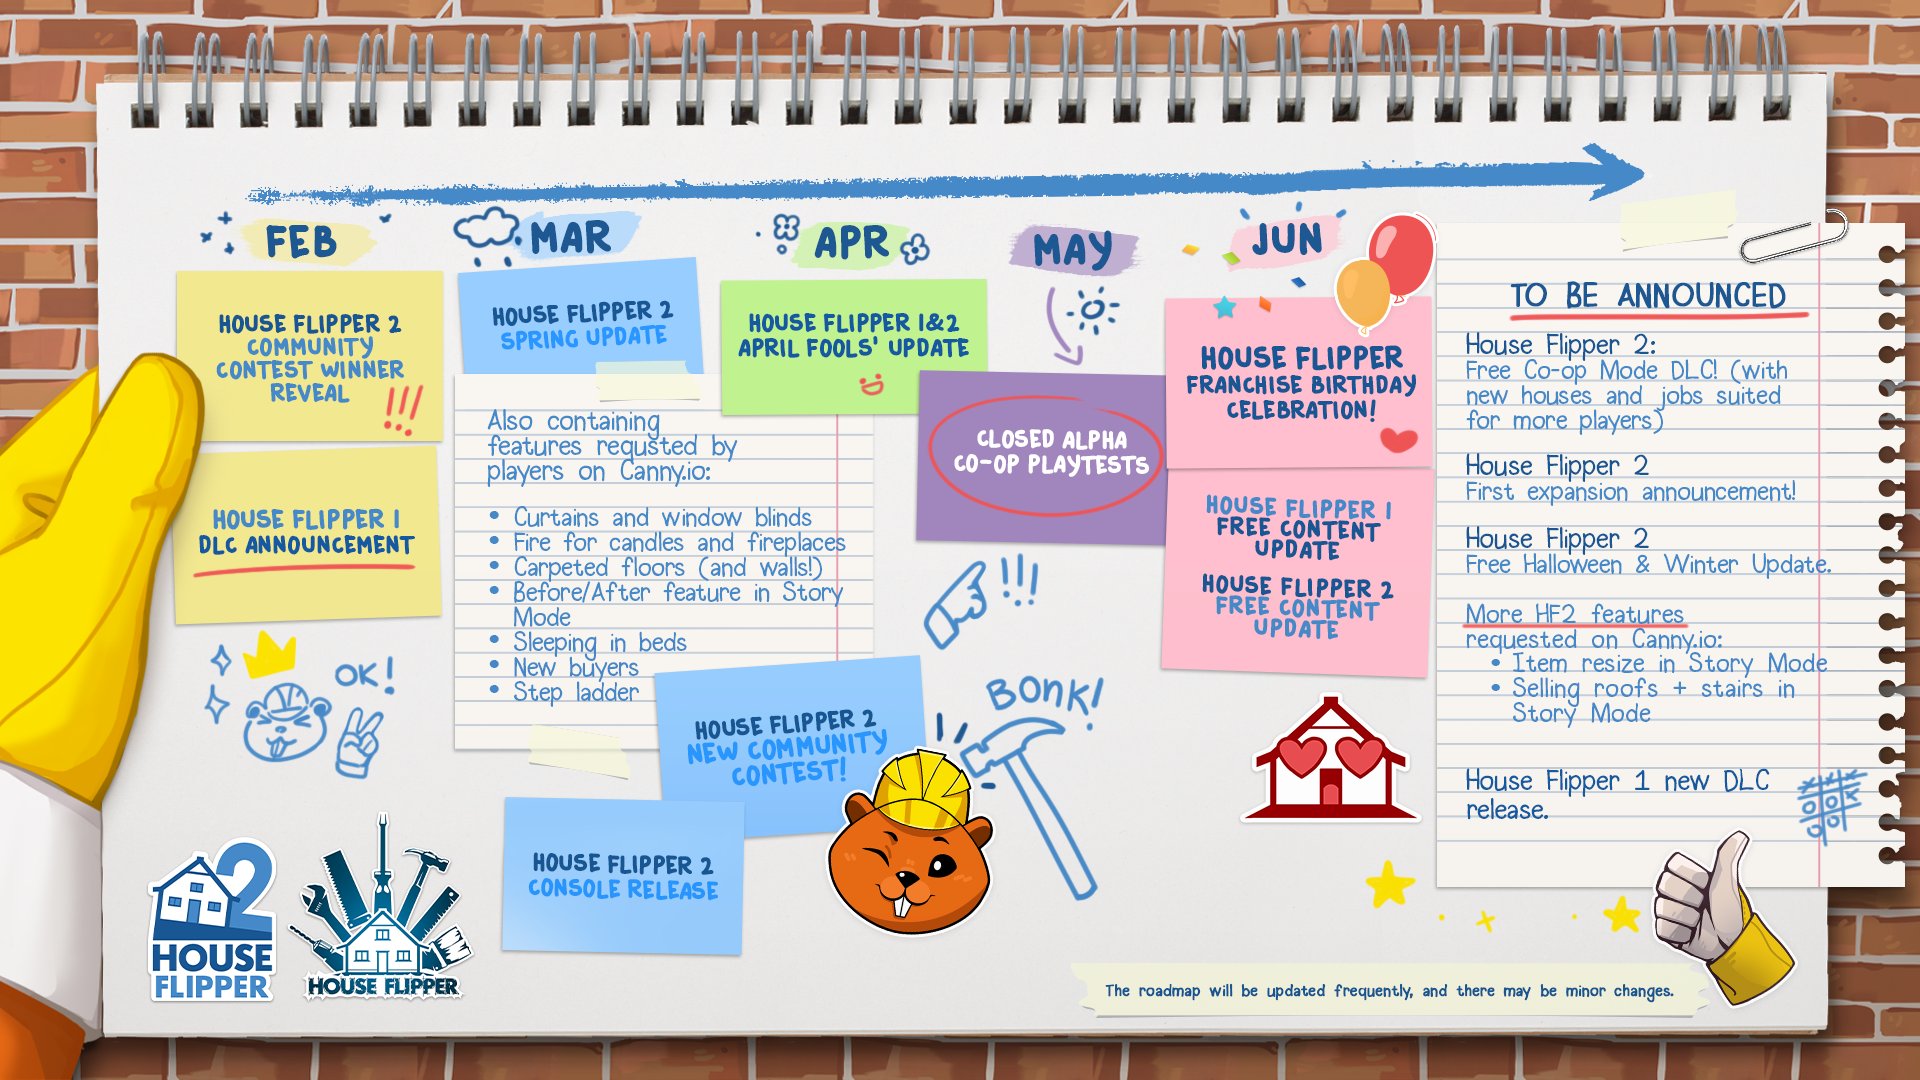 FEB
HOUSE FLIPPER 2
COMMUNITY
CONTEST WINNER
REVEAL
!!!
HOUSE FLIPPER 1
DLC ANNOUNCEMENT
OK!
MAR
HOUSE FLIPPER 2
SPRING UPDATE
Also containing
features requsted by
players on Canny.io:
• Curtains and window blinds
• Fire for candles and fireplaces
• Carpeted floors (and walls!)
• Before/After feature in Story
Mode
• Sleeping in beds
• New buyers
• Step ladder
HOUSE FLIPPER 2
NEW COMMUNITY
CONTEST!
HOUSE FLIPPER 2
CONSOLE RELEASE
APR
HOUSE FLIPPER 1&2
APRIL FOOLS' UPDATE
MAY
CLOSED ALPHA
CO-OP PLAYTESTS
!!!
BONK!
JUN
HOUSE FLIPPER
FRANCHISE BIRTHDAY
CELEBRATION!
HOUSE FLIPPER 1
FREE CONTENT
UPDATE
HOUSE FLIPPER 2
FREE CONTENT
UPDATE
TO BE ANNOUNCED
House Flipper 2:
Free Co-op Mode DLC! (with
new houses and jobs suited
for more players)
House Flipper 2
First expansion announcement!
House Flipper 2
Free Halloween & Winter Update.
More HF2 features
requested on Canny.io:
• Item resize in Story Mode
• Selling roofs + stairs in
Story Mode
House Flipper 1 new DLC
release.
2
HOUSE
FLIPPER
HOUSE FLIPPER
The roadmap will be updated frequently, and there may be minor changes.